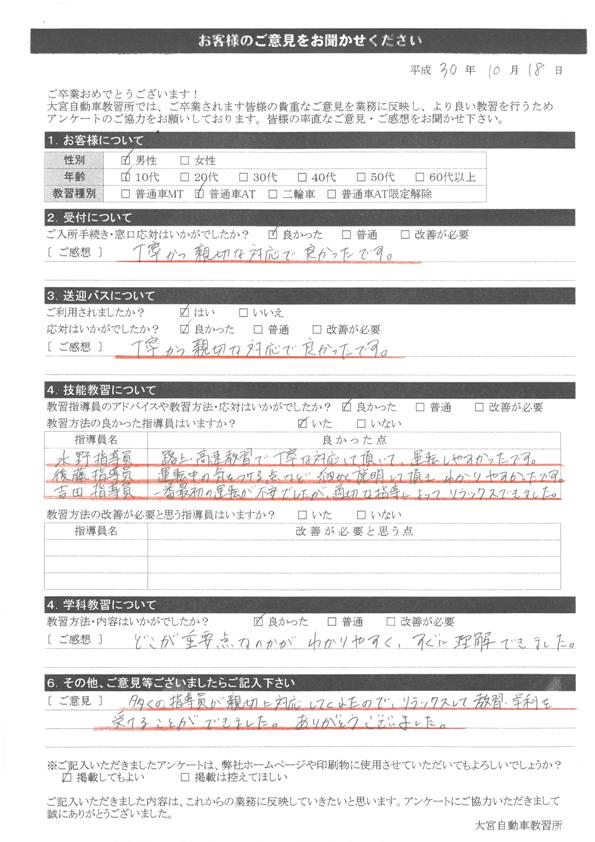 お客様のご意見をお聞かせください
平成 30 年 10 月 18 日
ご卒業おめでとうございます！
大宮自動車教習所では、ご卒業されます皆様の貴重なご意見を業務に反映し、より良い教習を行うため
アンケートのご協力をお願いしております。皆様の率直なご意見・ご感想をお聞かせ下さい。
1. お客様について
性別 ☑ 男性 □ 女性
年齢 ☑ 10代 □ 20代 □ 30代 □ 40代 □ 50代 □ 60代以上
教習種別 □ 普通車MT ☑ 普通車AT □ 二輪車 □ 普通車AT限定解除
2. 受付について
ご入所手続き・窓口応対はいかがでしたか？ ☑ 良かった □ 普通 □ 改善が必要
〔 ご感想 〕 丁寧かつ親切な対応で良かったです。
3. 送迎バスについて
ご利用されましたか？ ☑ はい □ いいえ
応対はいかがでしたか？ ☑ 良かった □ 普通 □ 改善が必要
〔 ご感想 〕 丁寧かつ親切な対応で良かったです。
4. 技能教習について
教習指導員のアドバイスや教習方法・応対はいかがでしたか？ ☑ 良かった □ 普通 □ 改善が必要
教習方法の良かった指導員はいますか？ ☑ いた □ いない
指導員名 良かった点
水野指導員 路上・高速教習で丁寧な対応して頂いて、運転しやすかったです。
後藤指導員 運転中の気をつける点など 細かく説明して頂き わかりやすかったです。
吉田指導員 一番最初の運転が不安でしたが、適切な指導によって リラックスできました。
教習方法の改善が必要と思う指導員はいますか？ □ いた □ いない
指導員名 改善が必要と思う点
4. 学科教習について
教習方法・内容はいかがでしたか？ ☑ 良かった □ 普通 □ 改善が必要
〔 ご感想 〕 どこが重要点なのかが わかりやすく、すぐに理解できました。
6. その他、ご意見等ございましたらご記入下さい
〔 ご意見 〕 多くの指導員が親切に対応してくれたので、リラックスして教習・学科を
受けることができました。 ありがとうございました。
※ご記入いただきましたアンケートは、弊社ホームページや印刷物に使用させていただいてもよろしいでしょうか？
☑ 掲載してもよい □ 掲載は控えてほしい
ご記入いただきました内容は、これからの業務に反映していきたいと思います。アンケートにご協力いただきまして
誠にありがとうございました。
大宮自動車教習所